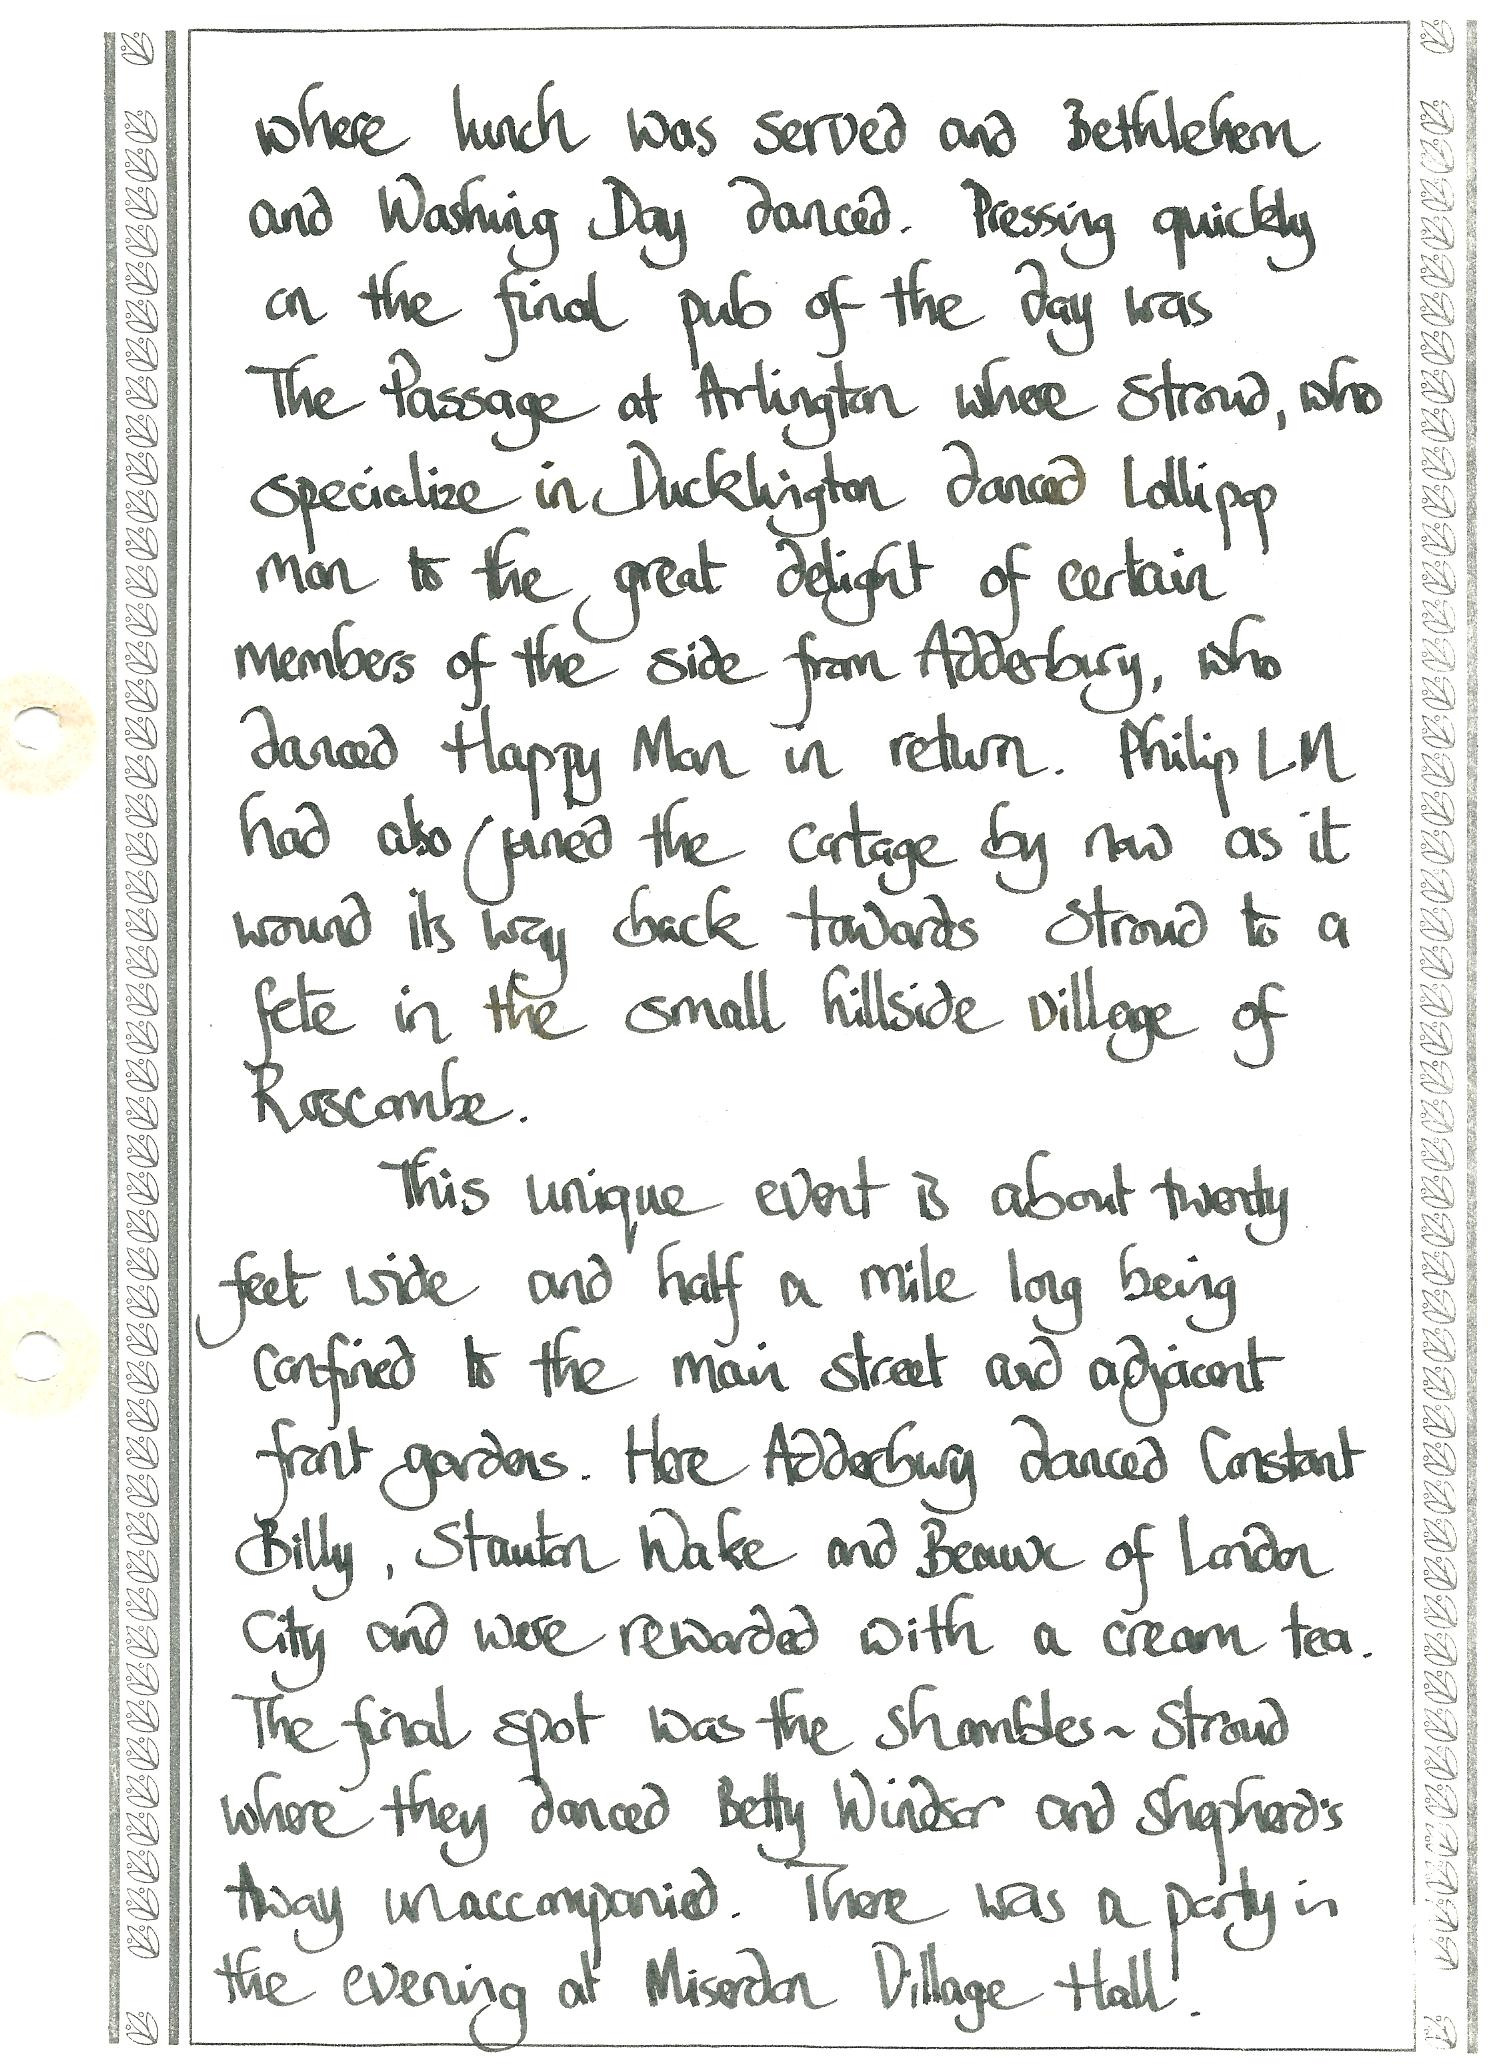 where lunch was served and Bethlehem
and Washing Day danced. Pressing quickly
on the final pub of the day was
The Passage at Arlington where Stroud, who
specialize in Ducklington danced Lollipop
Man to the great delight of certain
members of the side from Adderbury, who
danced Happy Man in return. Philip LM
had also joined the cortage by now as it
wound its way back towards Stroud to a
fete in the small hillside village of
Ruscombe.
This unique event is about twenty
feet wide and half a mile long being
confined to the main street and adjacent
front gardens. Here Adderbury danced Constant
Billy, Stauton Wake and Beaux of London
City and were rewarded with a cream tea.
The final spot was the Shambles ~ Stroud
where they danced Betty Windsor and Shepherd's
Away unaccompanied. There was a party in
the evening at Miserdon Village Hall.